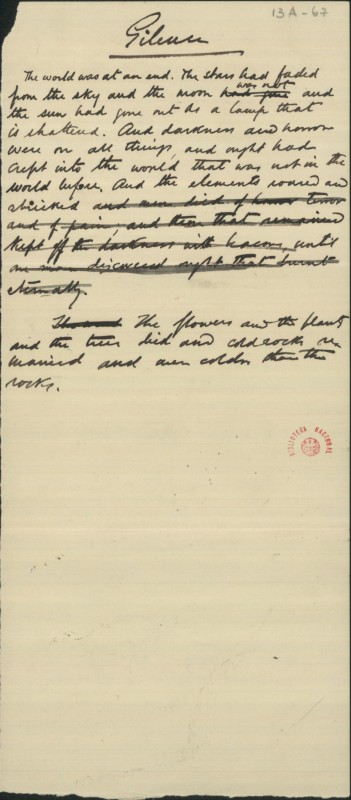 13A - 67
Silence
The world was at an end. The stars had faded
from the sky and the moon had gone was not and
the sun had gone out as a lamp that
is shattered. And darkness and horror
were on all things, and ought had
crept into the world that was not in the
world before. And the elements roared and
shrieked and men died of horror terror
and of pain, and those that remained
kept off the darkness with beacons, until
one man discovered ought that burnt
eternally.
The flowers and the plants
and the trees died and cold rocks re-
mained and men colder than the
rocks.
BIBLIOTECA NACIONAL